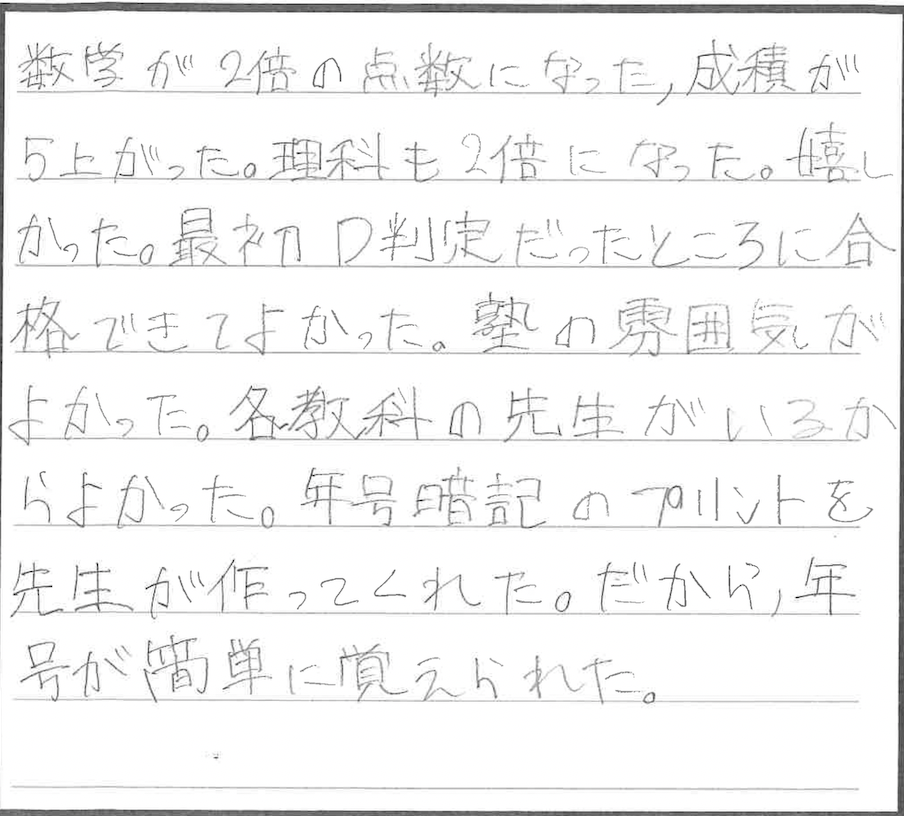 数学が2倍の点数になった,成績が
5上がった。理科も2倍になった。嬉し
かった。最初D判定だったところに合
格できてよかった。塾の雰囲気が
よかった。各教科の先生がいるか
らよかった。年号暗記のプリントを
先生が作ってくれた。だから,年
号が簡単に覚えられた。